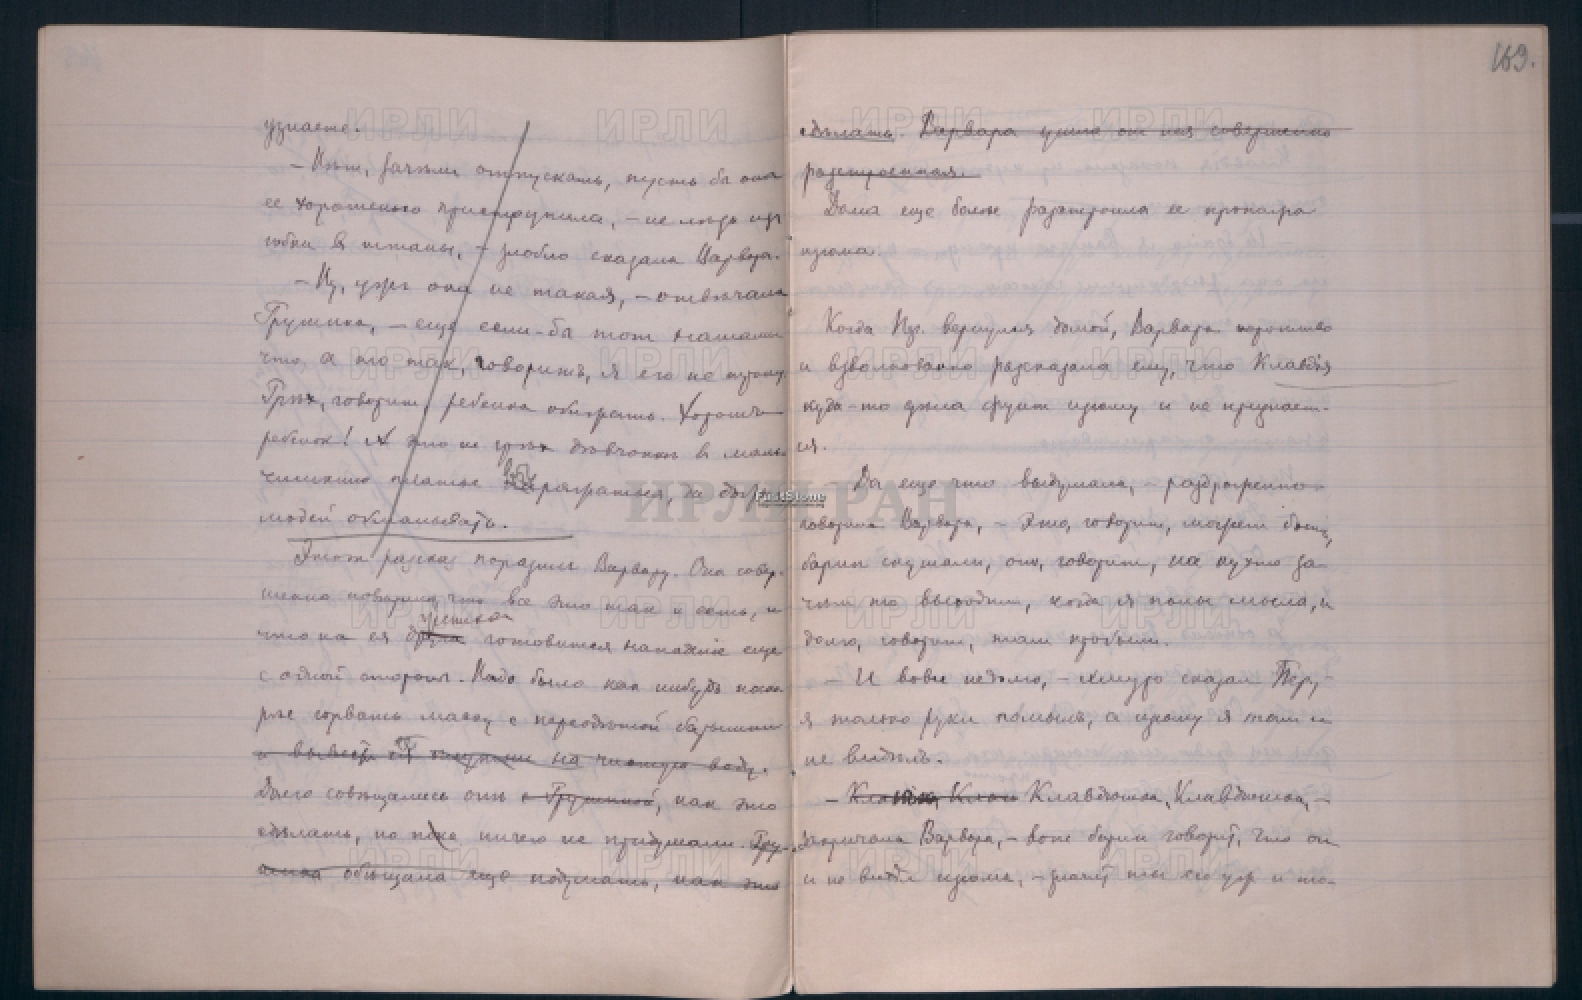 163.
узнаете.
– Нѣт, зачѣмъ отпускать, пусть бы она
ее хорошенько приструнила, – не лѣзь изъ
юбки в штаны, – злобно сказала Варвара.
– Ну, ужъ она не такая, – отвѣчала
Грушина, – еще если-бы тот
что, а то так, говоритъ, я его не
Грѣх, говорит, ребенка обижать. Хорошъ
ребенок! А это не грѣх дѣвчонкѣ в маль-
чишкино платье наряжаться, да добрых
людей обманывать.
Этот рассказ поразилъ Варвару. Она совер-
шенно повѣрила, что все это так и есть, и
что на ея готовится нападенiе еще
с одной стороны. Надо было как нибудь поско-
рѣе сорвать маску с переодѣтой барышни
и вывести на чистую воду.
Долго совѣщались онѣ с Грушиной, как это
сдѣлать, но пока ничего не придумали. Гру-
шина обѣщала еще подумать, как это
сдѣлать. Варвара ушла от нея совершенно
разстроенная.
Дома еще болѣе разстроила ее пропажа
изюма.
Когда Пер. вернулся домой, Варвара торопливо
и взволнованно разсказала ему, что Клавдiя
куда-то дѣла фунт изюму и не признает-
ся.
Да еще что выдумала, – раздраженно
говорила Варвара, – Это, говорит, может быть,
барин скушали, они, говорит, на кухню за
чѣм то выходили, когда я полы мыла, и
долго, говорит, там пробыли.
– И вовсе недолго, – хмуро сказал Пер.,
я только руки помылъ, а изюму я там и
не видѣлъ.
– Клавдюшка, Клавдюшка, –
закричала Варвара, – вон барин говорит, что он
и не видѣл изюма, – значит ты его уж и то-
ИРЛИ РАН
ИРЛИ